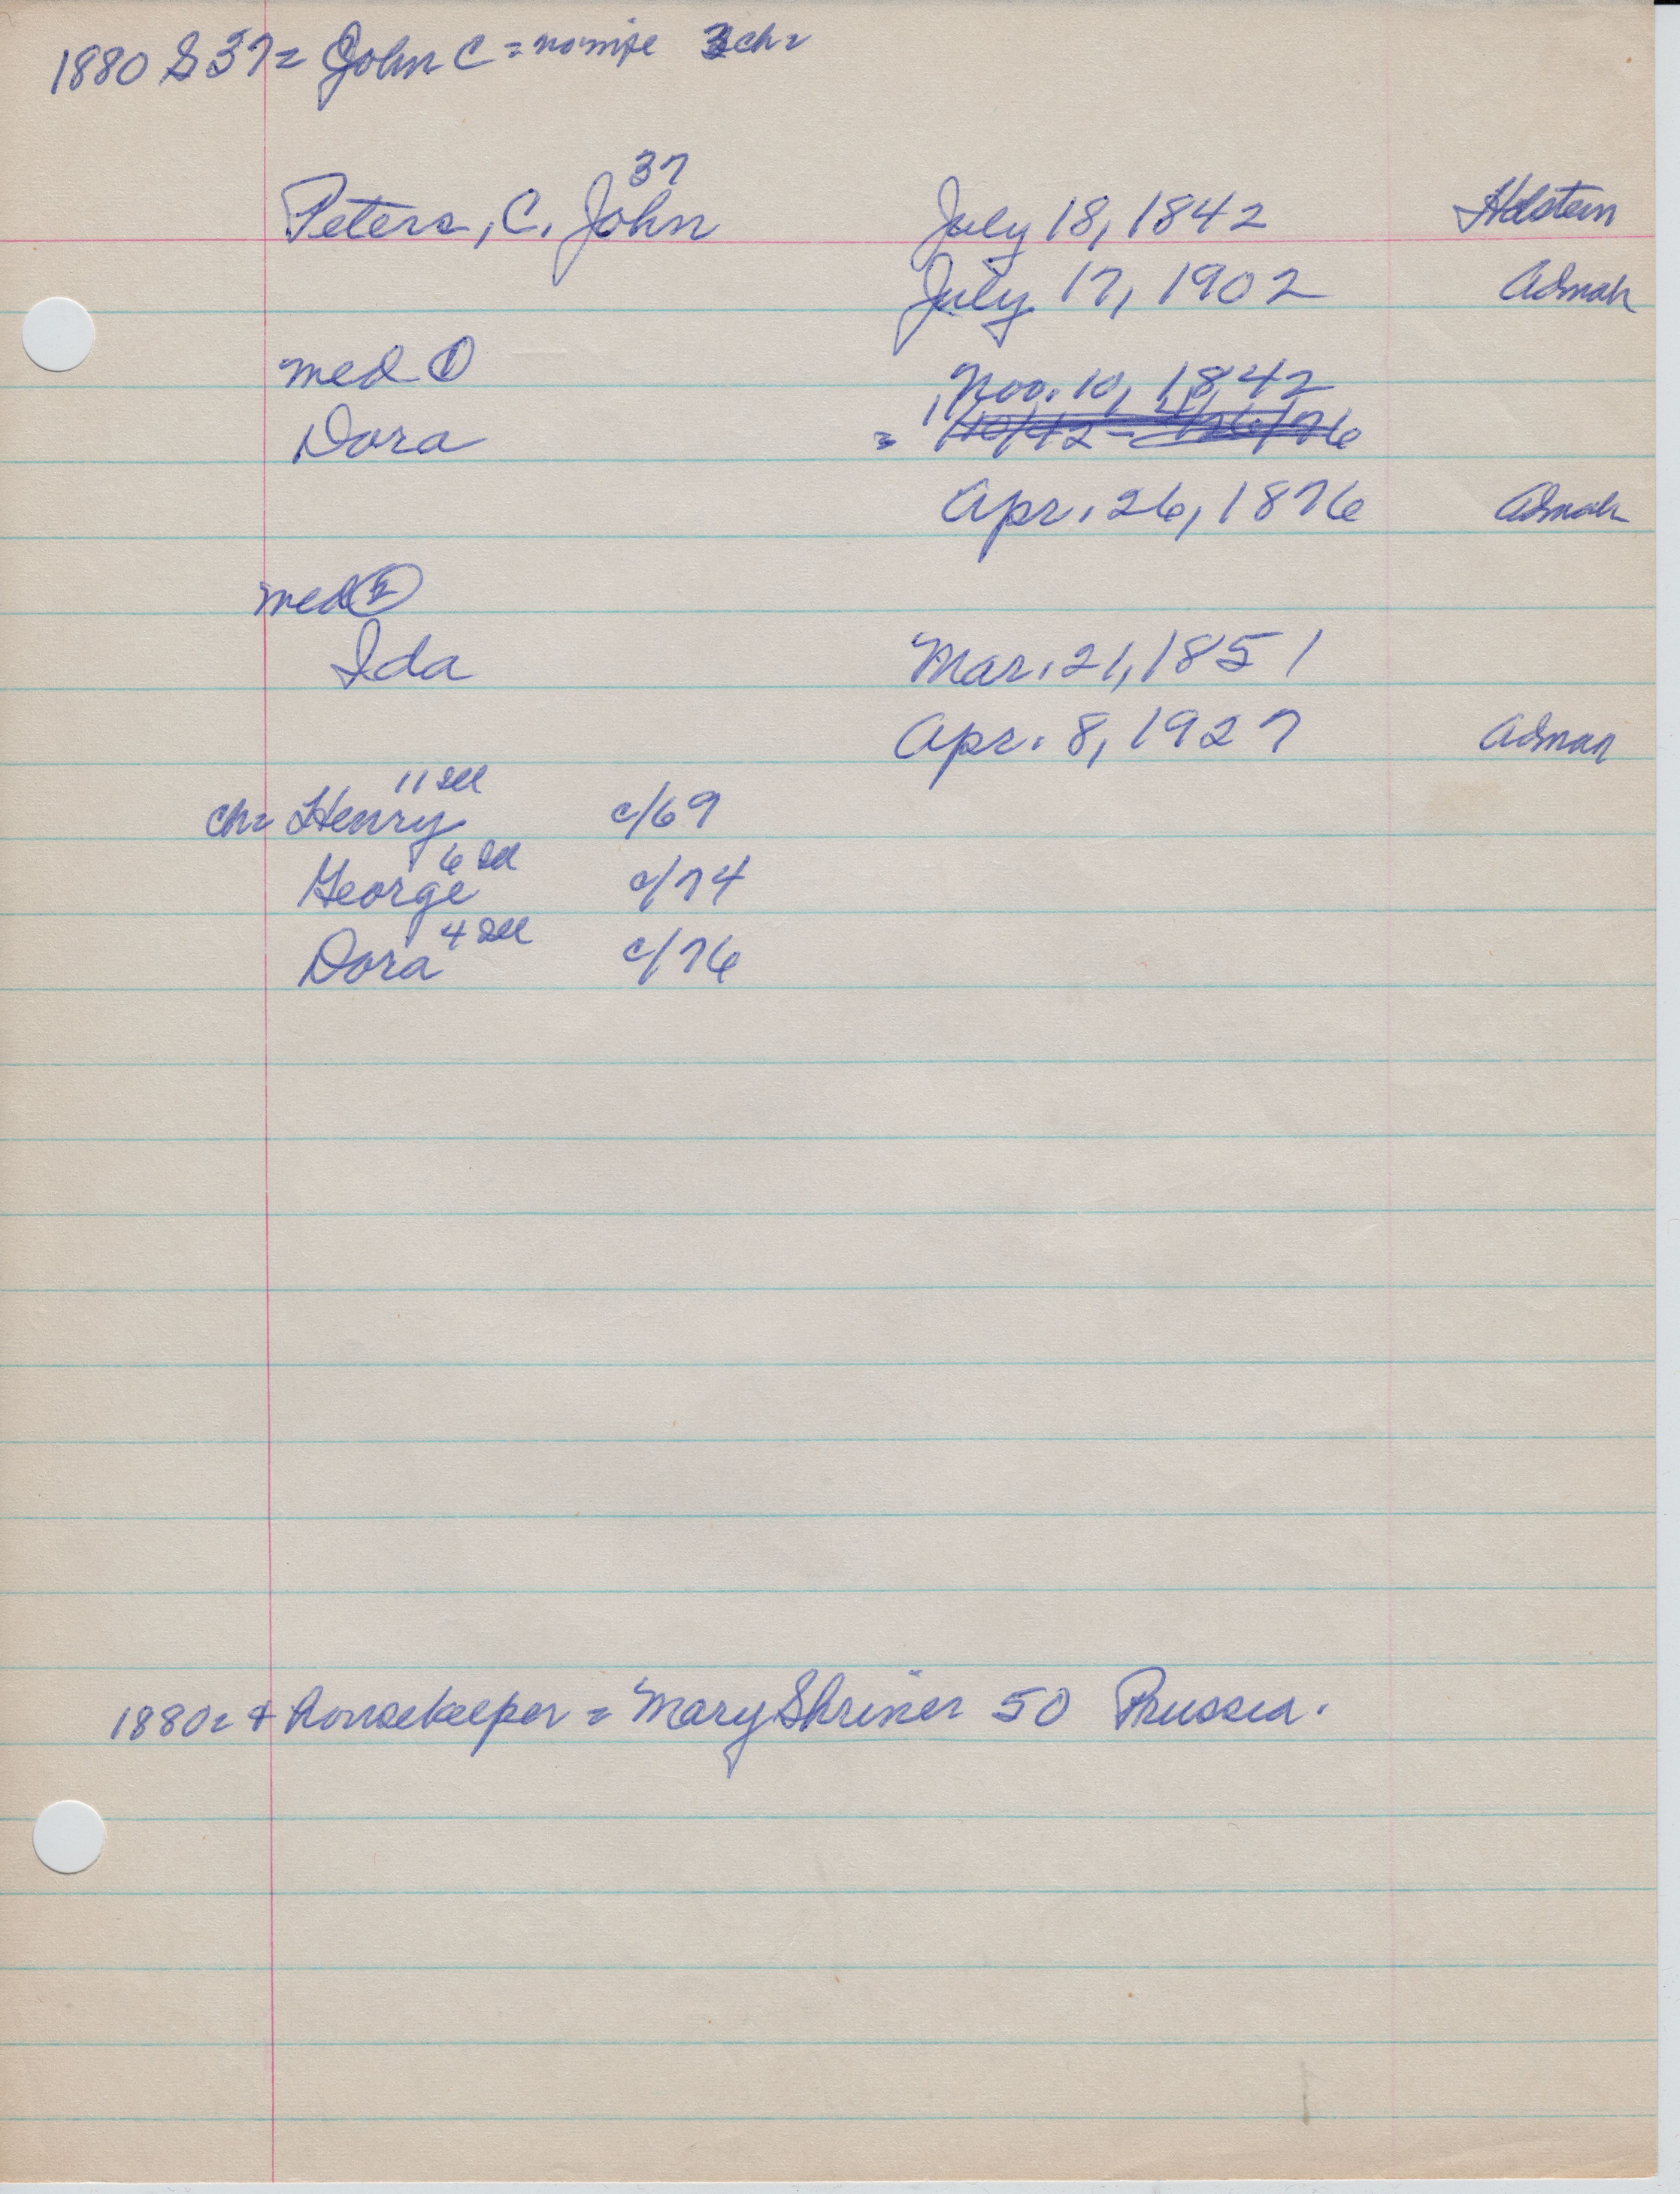 1880 S 37 = John C = no wife 3 ch =
37
Peters, C. John July 18, 1842 Holstein
July 17, 1902 Admah
med ①
Nov. 10, 1842
Dora =
Apr. 26, 1876 Admah
med ②
Ida Mar. 21, 1851
Apr. 8, 1927 Admah
11
ch = Henry c/69
6
George c/74
4
Dora c/76
1880 = + housekeeper = Mary Shriner 50 Prussia.